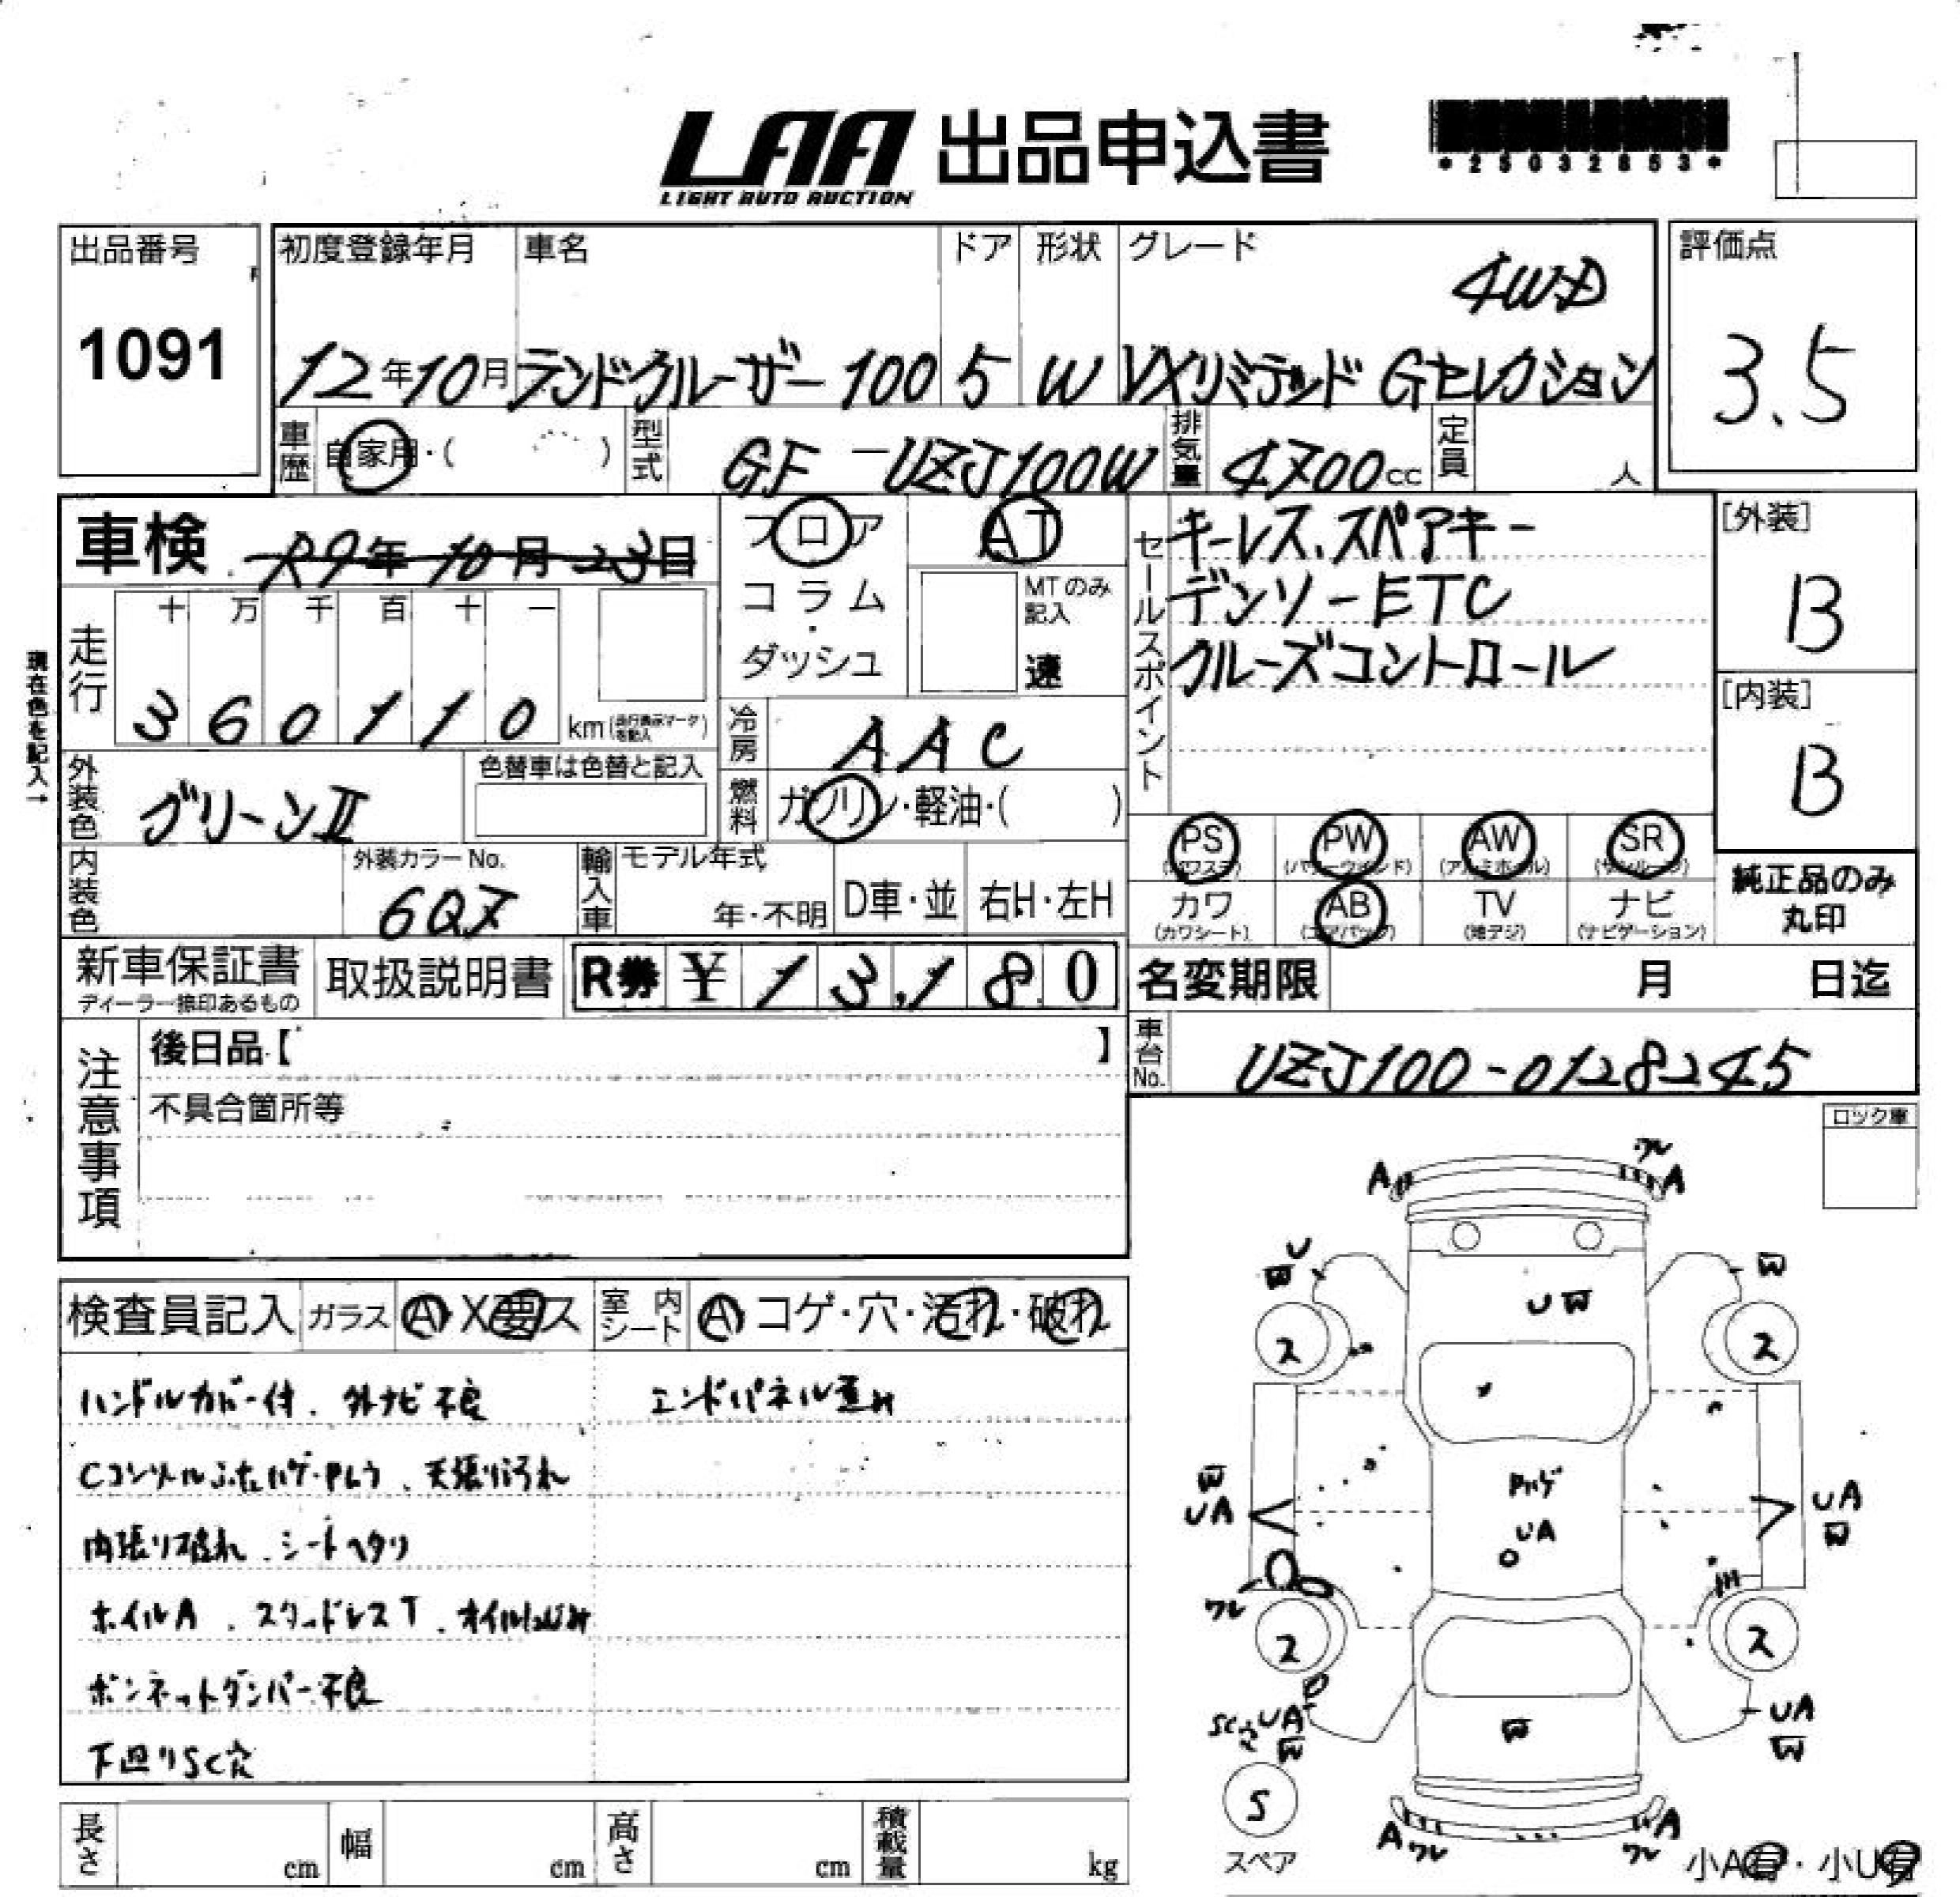 LAA 出品申込書
LIGHT AUTO AUCTION
*25032853*
出品番号
1091
初度登録年月 車名 ドア 形状 グレード
4WD
12年10月 ランドクルーザー100 5 W VXリミテッド Gセレクション
評価点
3.5
車歴 自家用・( ) 型式 GF-UZJ100W 排気量 4700cc 定員 人
車検 R9年10月23日
フロア
コラム
ダッシュ
AT
MTのみ記入
速
セールスポイント
キーレス、スペアキー
デンソーETC
クルーズコントロール
[外装]
B
[内装]
B
現在色を記入→
走行
十 万 千 百 十 一
3 6 0 1 1 0 km(走行表示マークを記入)
冷房 AAC
外装色 グリーンⅡ
色替車は色替と記入
燃料 ガソリン・軽油・( )
PS (パワステ)
PW (パワーウインド)
AW (アルミホイル)
SR (サンルーフ)
カワ (カワシート)
AB (エアバック)
TV (地デジ)
ナビ (ナビゲーション)
純正品のみ丸印
内装色
外装カラーNo.
6Q7
輸入車 モデル年式
年・不明 D車・並 右H・左H
新車保証書
ディーラー捺印あるもの
取扱説明書
R券 ¥ 13,180
名変期限 月 日迄
車台No. UZJ100-0128245
注意事項
後日品【 】
不具合箇所等
ロック車
検査員記入 ガラス A・X要ス 室内シート A・コゲ・穴・汚れ・破れ
ハンドルカバー付、外ナビ不良 エンドパネル歪み
Cコンソールふたハゲ・Pしろ、天張り汚れ
内張り破れ、シートヘタリ
ホイルA、スタッドレスT、オイルにじみ
ボンネットダンパー不良
下廻りSC穴
A ワレ A
U W W
U W
ス ス
Pハゲ
W UA UA UA W
ワレ
ス ス
SC穴 UA W W UA W
S
スペア
A ワレ ワレ A
小A有・小U有
長さ cm 幅 cm 高さ cm 積載量 kg